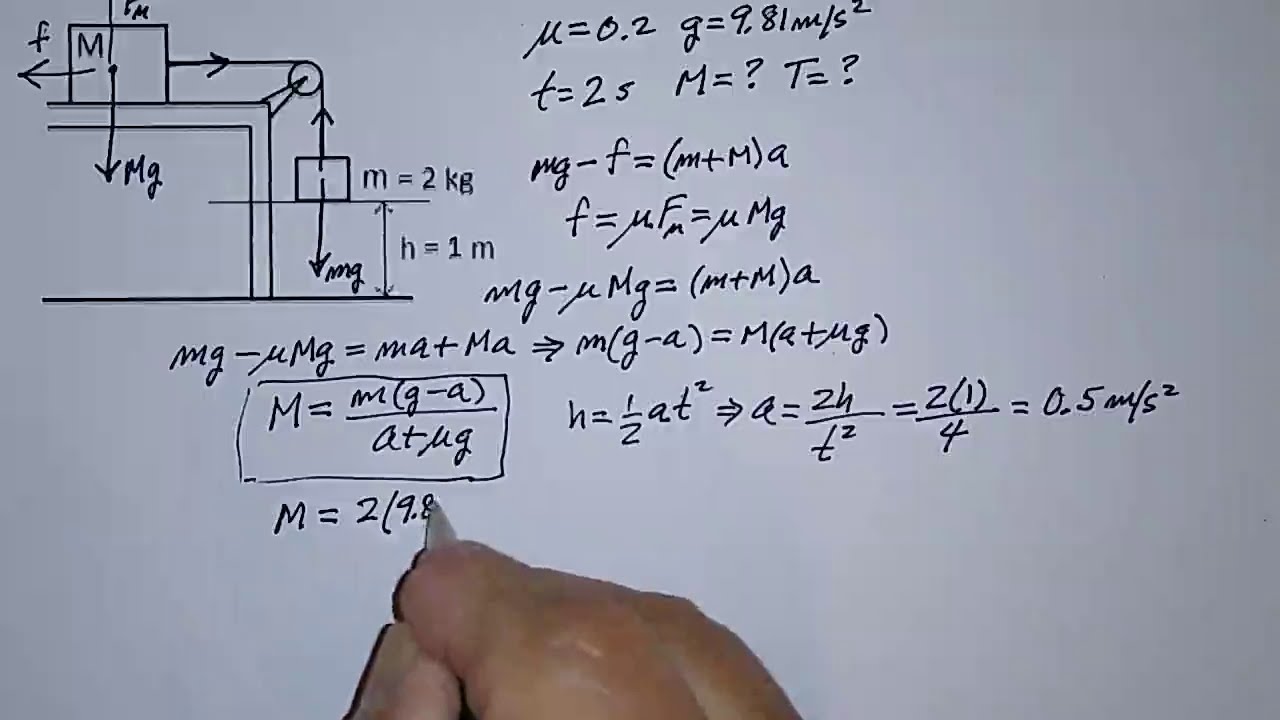 Fₙ
f
M
Mg
m = 2 kg
h = 1 m
mg
μ=0.2 g=9.81m/s²
t=2s M=? T=?
mg-f=(m+M)a
f=μFₙ=μMg
mg-μMg=(m+M)a
mg-μMg=ma+Ma ⇒ m(g-a)=M(a+μg)
M= m(g-a)/a+μg
h=1/2at² ⇒ a=2h/t²=2(1)/4=0.5m/s²
M=2(9.8